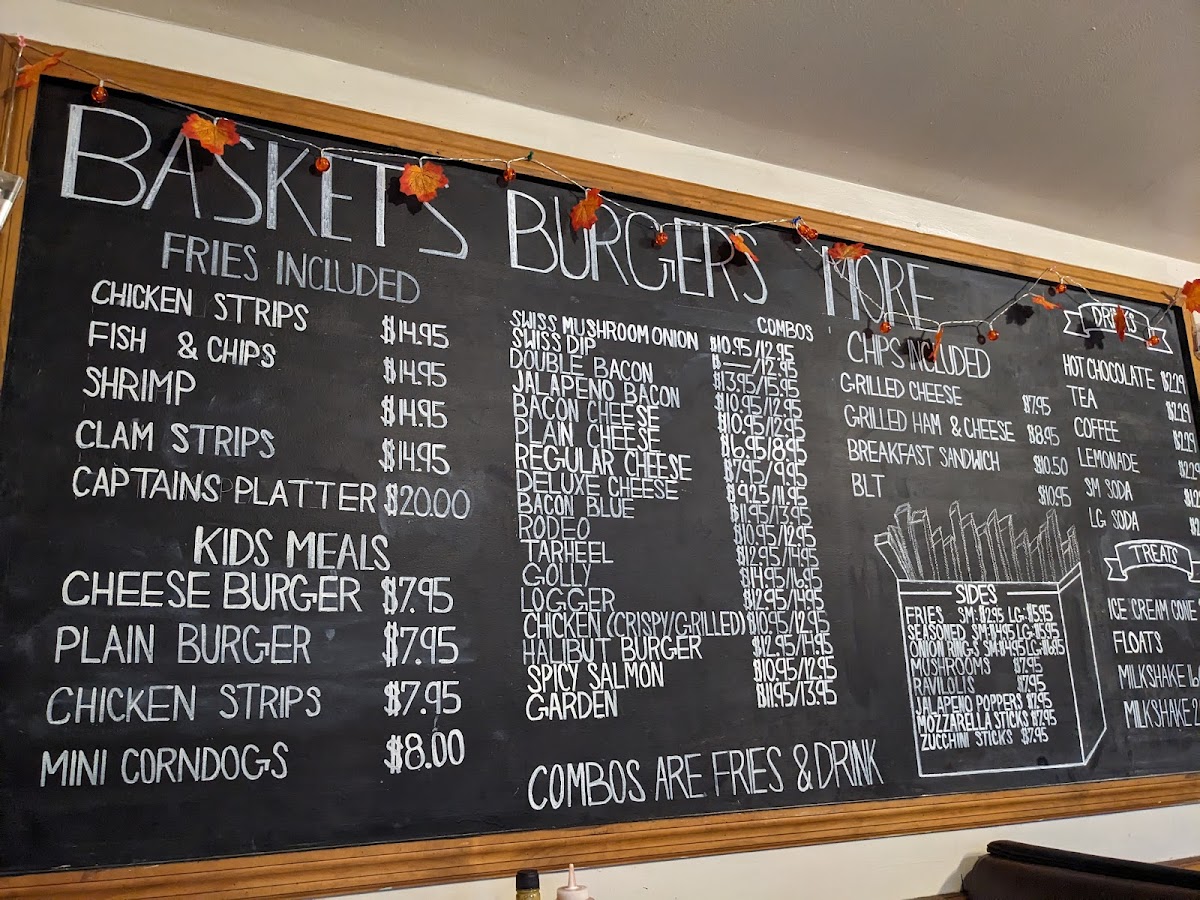 BASKETS
FRIES INCLUDED
CHICKEN STRIPS $14.95
FISH & CHIPS $14.95
SHRIMP $14.95
CLAM STRIPS $14.95
CAPTAINS PLATTER $20.00
KIDS MEALS
CHEESE BURGER $7.95
PLAIN BURGER $7.95
CHICKEN STRIPS $7.95
MINI CORNDOGS $8.00
BURGERS
COMBOS
SWISS MUSHROOM ONION $10.95/12.95
SWISS DIP $——/12.95
DOUBLE BACON $13.95/15.95
JALAPENO BACON $10.95/12.95
BACON CHEESE $10.95/12.95
PLAIN CHEESE $6.95/8.95
REGULAR CHEESE $7.95/9.95
DELUXE CHEESE $9.25/11.95
BACON BLUE $11.95/13.95
RODEO $10.95/12.95
TARHEEL $12.95/14.95
GOLLY $14.95/16.95
LOGGER $12.95/14.95
CHICKEN (CRISPY/GRILLED) $10.95/12.95
HALIBUT BURGER $12.95/14.95
SPICY SALMON $10.95/12.95
GARDEN $11.95/13.95
COMBOS ARE FRIES & DRINK
MORE
CHIPS INCLUDED
GRILLED CHEESE $7.95
GRILLED HAM & CHEESE $8.95
BREAKFAST SANDWICH $10.50
BLT $10.95
SIDES
FRIES SM:$2.95 LG:$5.95
SEASONED SM:$4.95 LG:$5.95
ONION RINGS SM:$4.95 LG:$6.95
MUSHROOMS $7.95
RAVIOLIS $7.95
JALAPENO POPPERS $7.95
MOZZARELLA STICKS $7.95
ZUCCHINI STICKS $7.95
DRINKS
HOT CHOCOLATE $2.29
TEA $2.29
COFFEE $2.29
LEMONADE
SM SODA
LG SODA
TREATS
ICE CREAM CONE
FLOATS
MILKSHAKE
MILKSHAKE